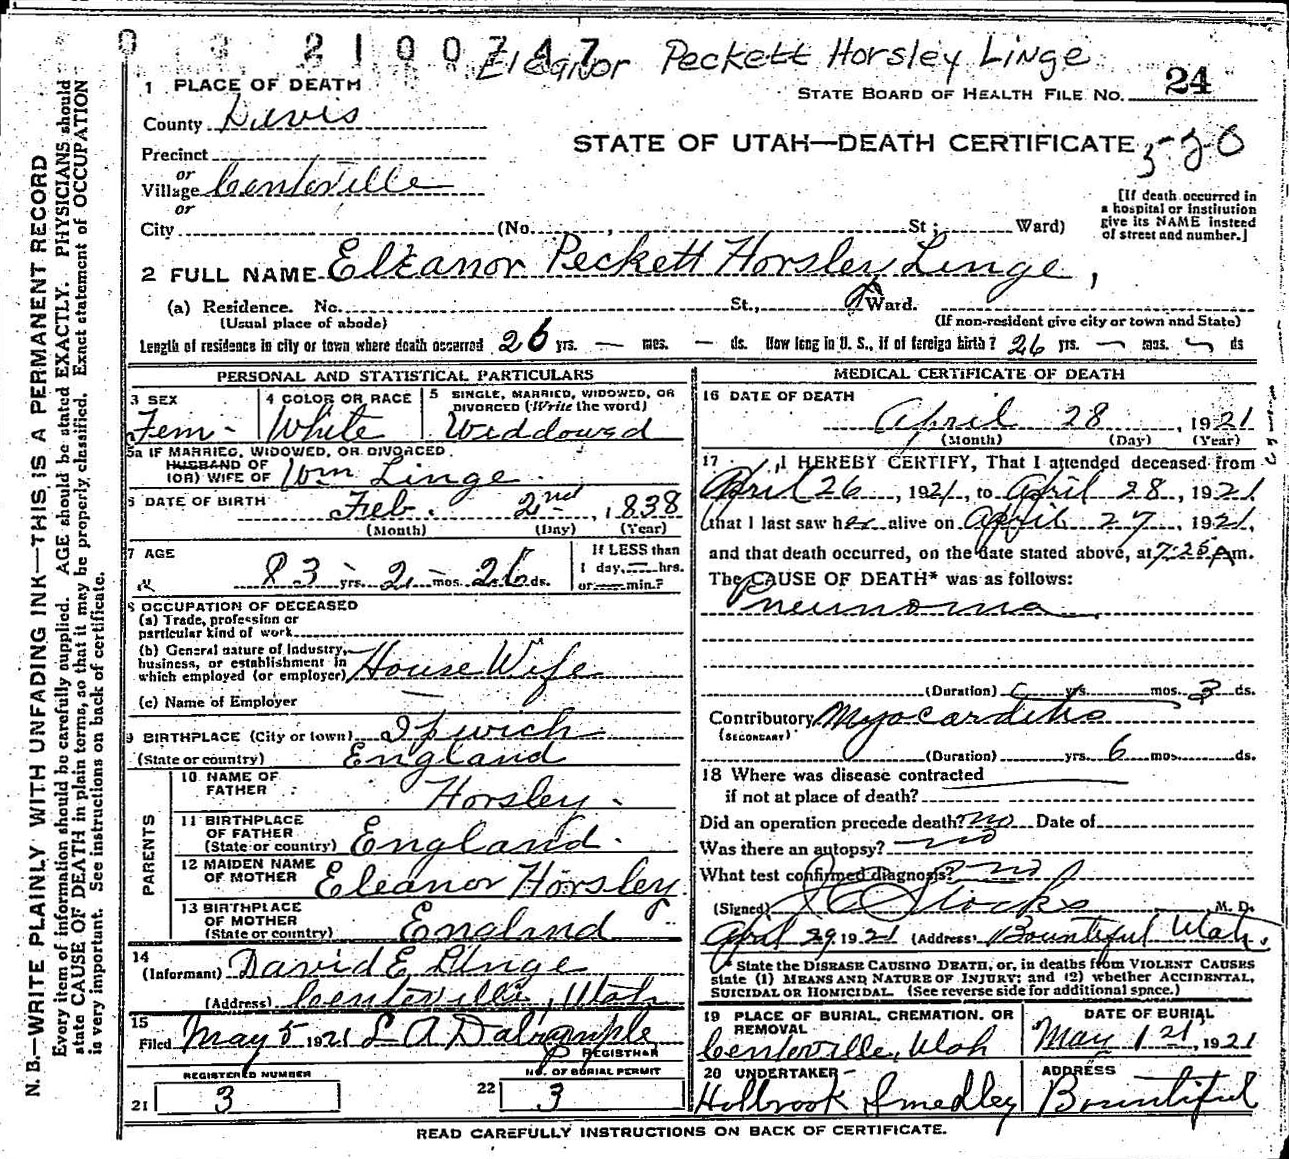 0 3 2100747 Eleanor Peckett Horsley Linge
1 PLACE OF DEATH
STATE BOARD OF HEALTH FILE NO. 24
County Davis
STATE OF UTAH—DEATH CERTIFICATE 520
Precinct
or
Village Centerville
or
[If death occurred in a hospital or institution give its NAME instead of street and number.]
City (No. , St ; Ward)
2 FULL NAME Eleanor Peckett Horsley Linge ,
(a) Residence. No. St., Ward.
(Usual place of abode) (If non-resident give city or town and State)
Length of residence in city or town where death occurred 26 yrs. — mos. — ds. How long in U. S., if of foreign birth? 26 yrs. — mos. — ds
PERSONAL AND STATISTICAL PARTICULARS
3 SEX Fem-
4 COLOR OR RACE White
5 SINGLE, MARRIED, WIDOWED, OR DIVORCED (Write the word) Widdowed
5a IF MARRIED, WIDOWED, OR DIVORCED
HUSBAND OF
(OR) WIFE OF Wm Linge
6 DATE OF BIRTH Feb. 2nd, 1838
(Month) (Day) (Year)
7 AGE 83 yrs. 2 mos. 26 ds.
If LESS than 1 day, — hrs. or — min.?
8 OCCUPATION OF DECEASED
(a) Trade, profession or particular kind of work
(b) General nature of industry, business, or establishment in which employed (or employer) House Wife
(c) Name of Employer —
9 BIRTHPLACE (City or town) Ipwich
(State or country) England
PARENTS
10 NAME OF FATHER Horsley.
11 BIRTHPLACE OF FATHER (State or country) England.
12 MAIDEN NAME OF MOTHER Eleanor Horsley
13 BIRTHPLACE OF MOTHER (State or country) England
14
(Informant) David E Linge
(Address) Centerville, Utah
15
Filed May 5 1921 L A Dalrymple
REGISTRAR
REGISTERED NUMBER
21 3
NO. OF BURIAL PERMIT
22 3
MEDICAL CERTIFICATE OF DEATH
16 DATE OF DEATH
April 28, 1921
(Month) (Day) (Year)
17 I HEREBY CERTIFY, That I attended deceased from
April 26, 1921, to April 28, 1921
that I last saw her alive on April 27, 1921,
and that death occurred, on the date stated above, at 7:25 A m.
The CAUSE OF DEATH* was as follows:
Pneunoma
(Duration) yrs. mos. 3 ds.
Contributory Myocarditis
(SECONDARY)
(Duration) yrs. 6 mos. ds.
18 Where was disease contracted
if not at place of death?
Did an operation precede death? no Date of
Was there an autopsy? no
What test confirmed diagnosis? no
(Signed) Stocks M. D.
April 29, 1921 (Address) Bountiful Utah.
* State the DISEASE CAUSING DEATH, or, in deaths from VIOLENT CAUSES
state (1) MEANS AND NATURE OF INJURY; and (2) whether ACCIDENTAL,
SUICIDAL OR HOMICIDAL. (See reverse side for additional space.)
19 PLACE OF BURIAL, CREMATION, OR REMOVAL
Centerville, Utah
DATE OF BURIAL
May 1 21, 1921
20 UNDERTAKER
Holbrook Smedley
ADDRESS
Bountiful
READ CAREFULLY INSTRUCTIONS ON BACK OF CERTIFICATE.
N. B.—WRITE PLAINLY WITH UNFADING INK—THIS IS A PERMANENT RECORD
Every item of information should be carefully supplied. AGE should be stated EXACTLY. PHYSICIANS should
state CAUSE OF DEATH in plain terms, so that it may be properly classified. Exact statement of OCCUPATION
is very important. See instructions on back of certificate.